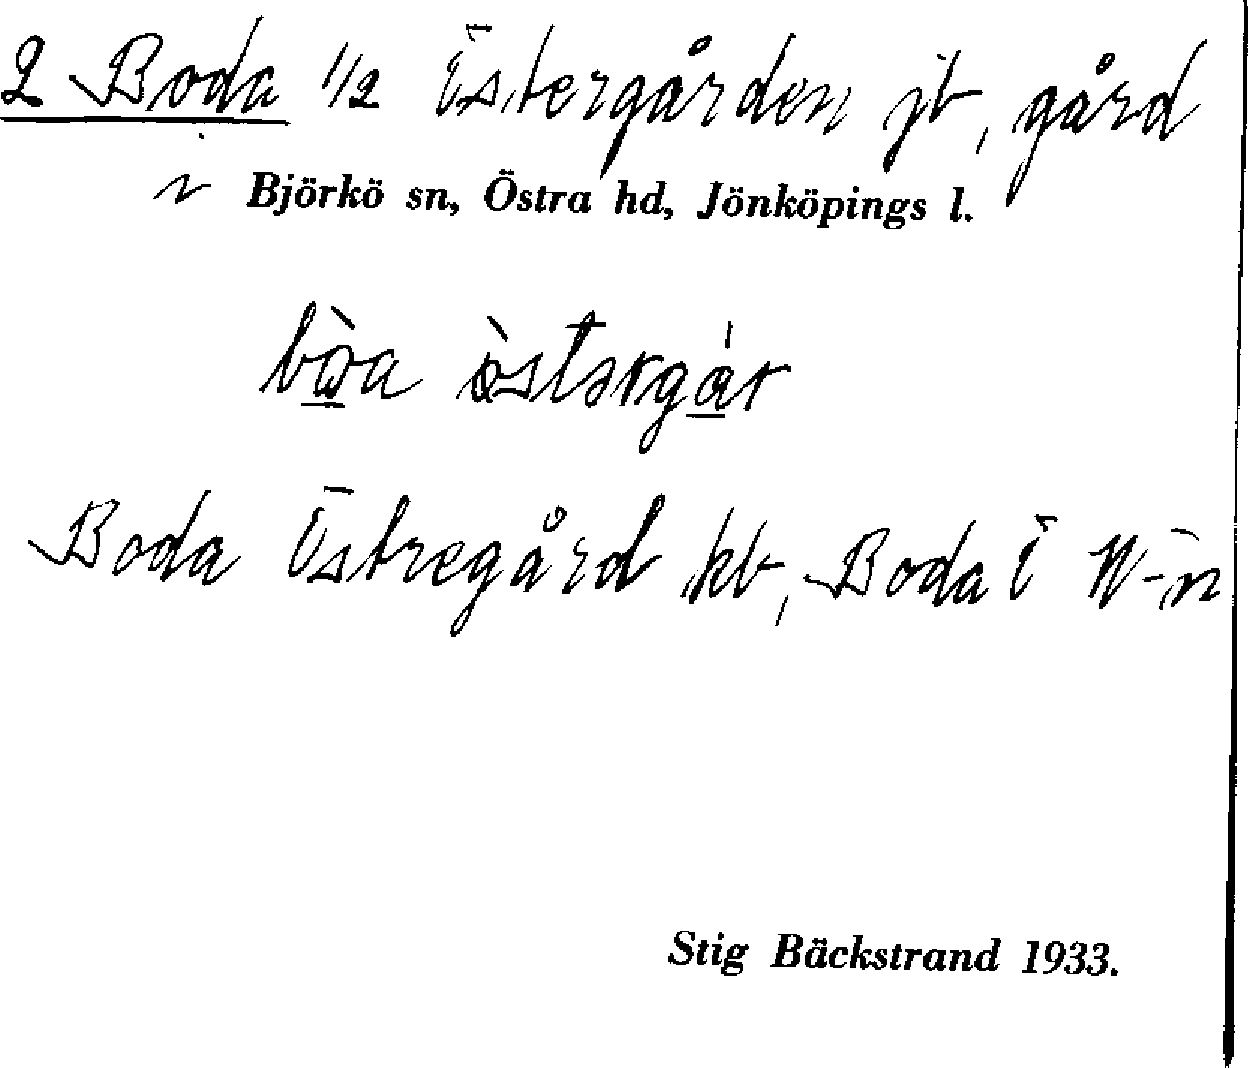 2 Boda 1/2 Östergården jb, gård
Björkö sn, Östra hd, Jönköpings l.
bòa östərgår
Boda Östregård kb, Boda Ö
Stig Bäckstrand 1933.